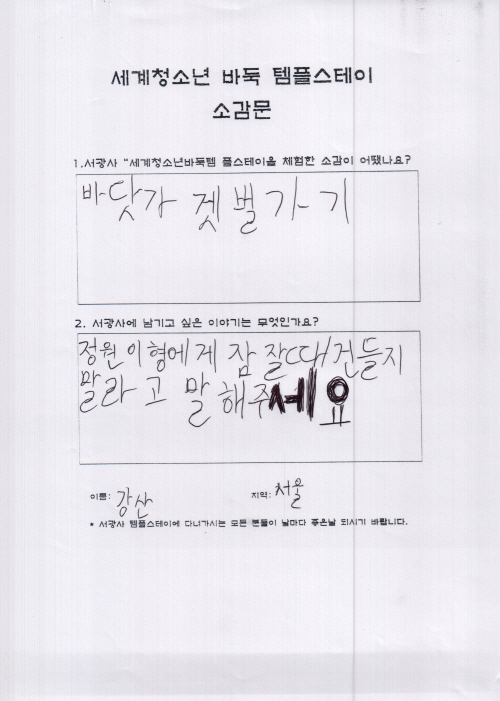 세계청소년 바둑 템플스테이
소감문
1.서광사 "세계청소년바둑템 플스테이을 체험한 소감이 어땠나요?
바닷가 겟벌가기
2. 서광사에 남기고 싶은 이야기는 무엇인가요?
정원이형에게 잠잘때 건들지
말라고 말해주세요
이름: 강산
지역: 서울
* 서광사 템플스테이에 다녀가시는 모든 분들이 날마다 좋은날 되시기 바랍니다.